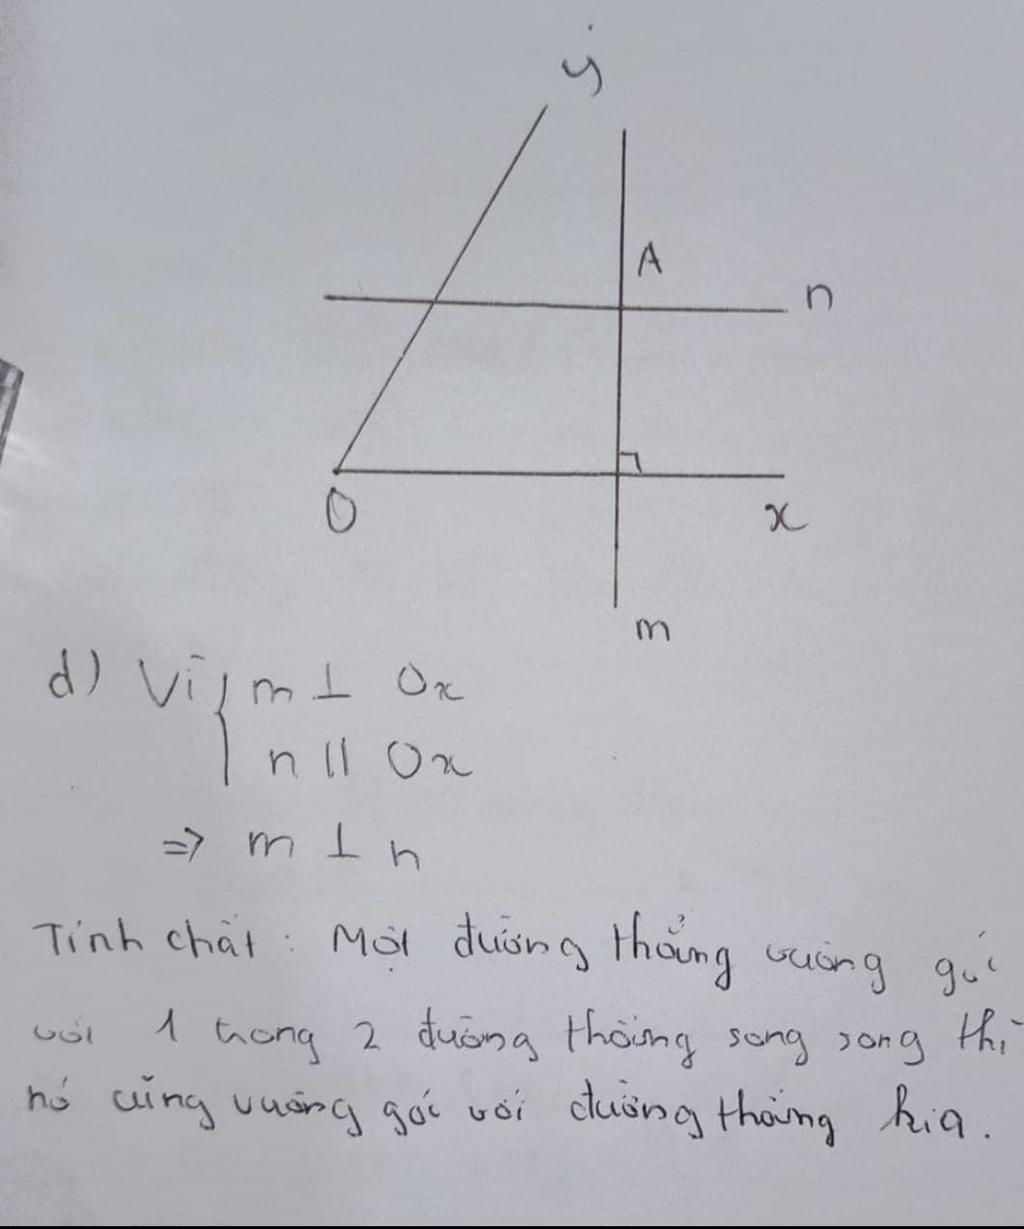 y
A
n
O
x
m
d) Vì { m ⊥ Ox
n || Ox
=> m ⊥ n
Tính chất : Một đường thẳng vuông góc
với 1 trong 2 đường thẳng song song thì
nó cũng vuông góc với đường thẳng kia.